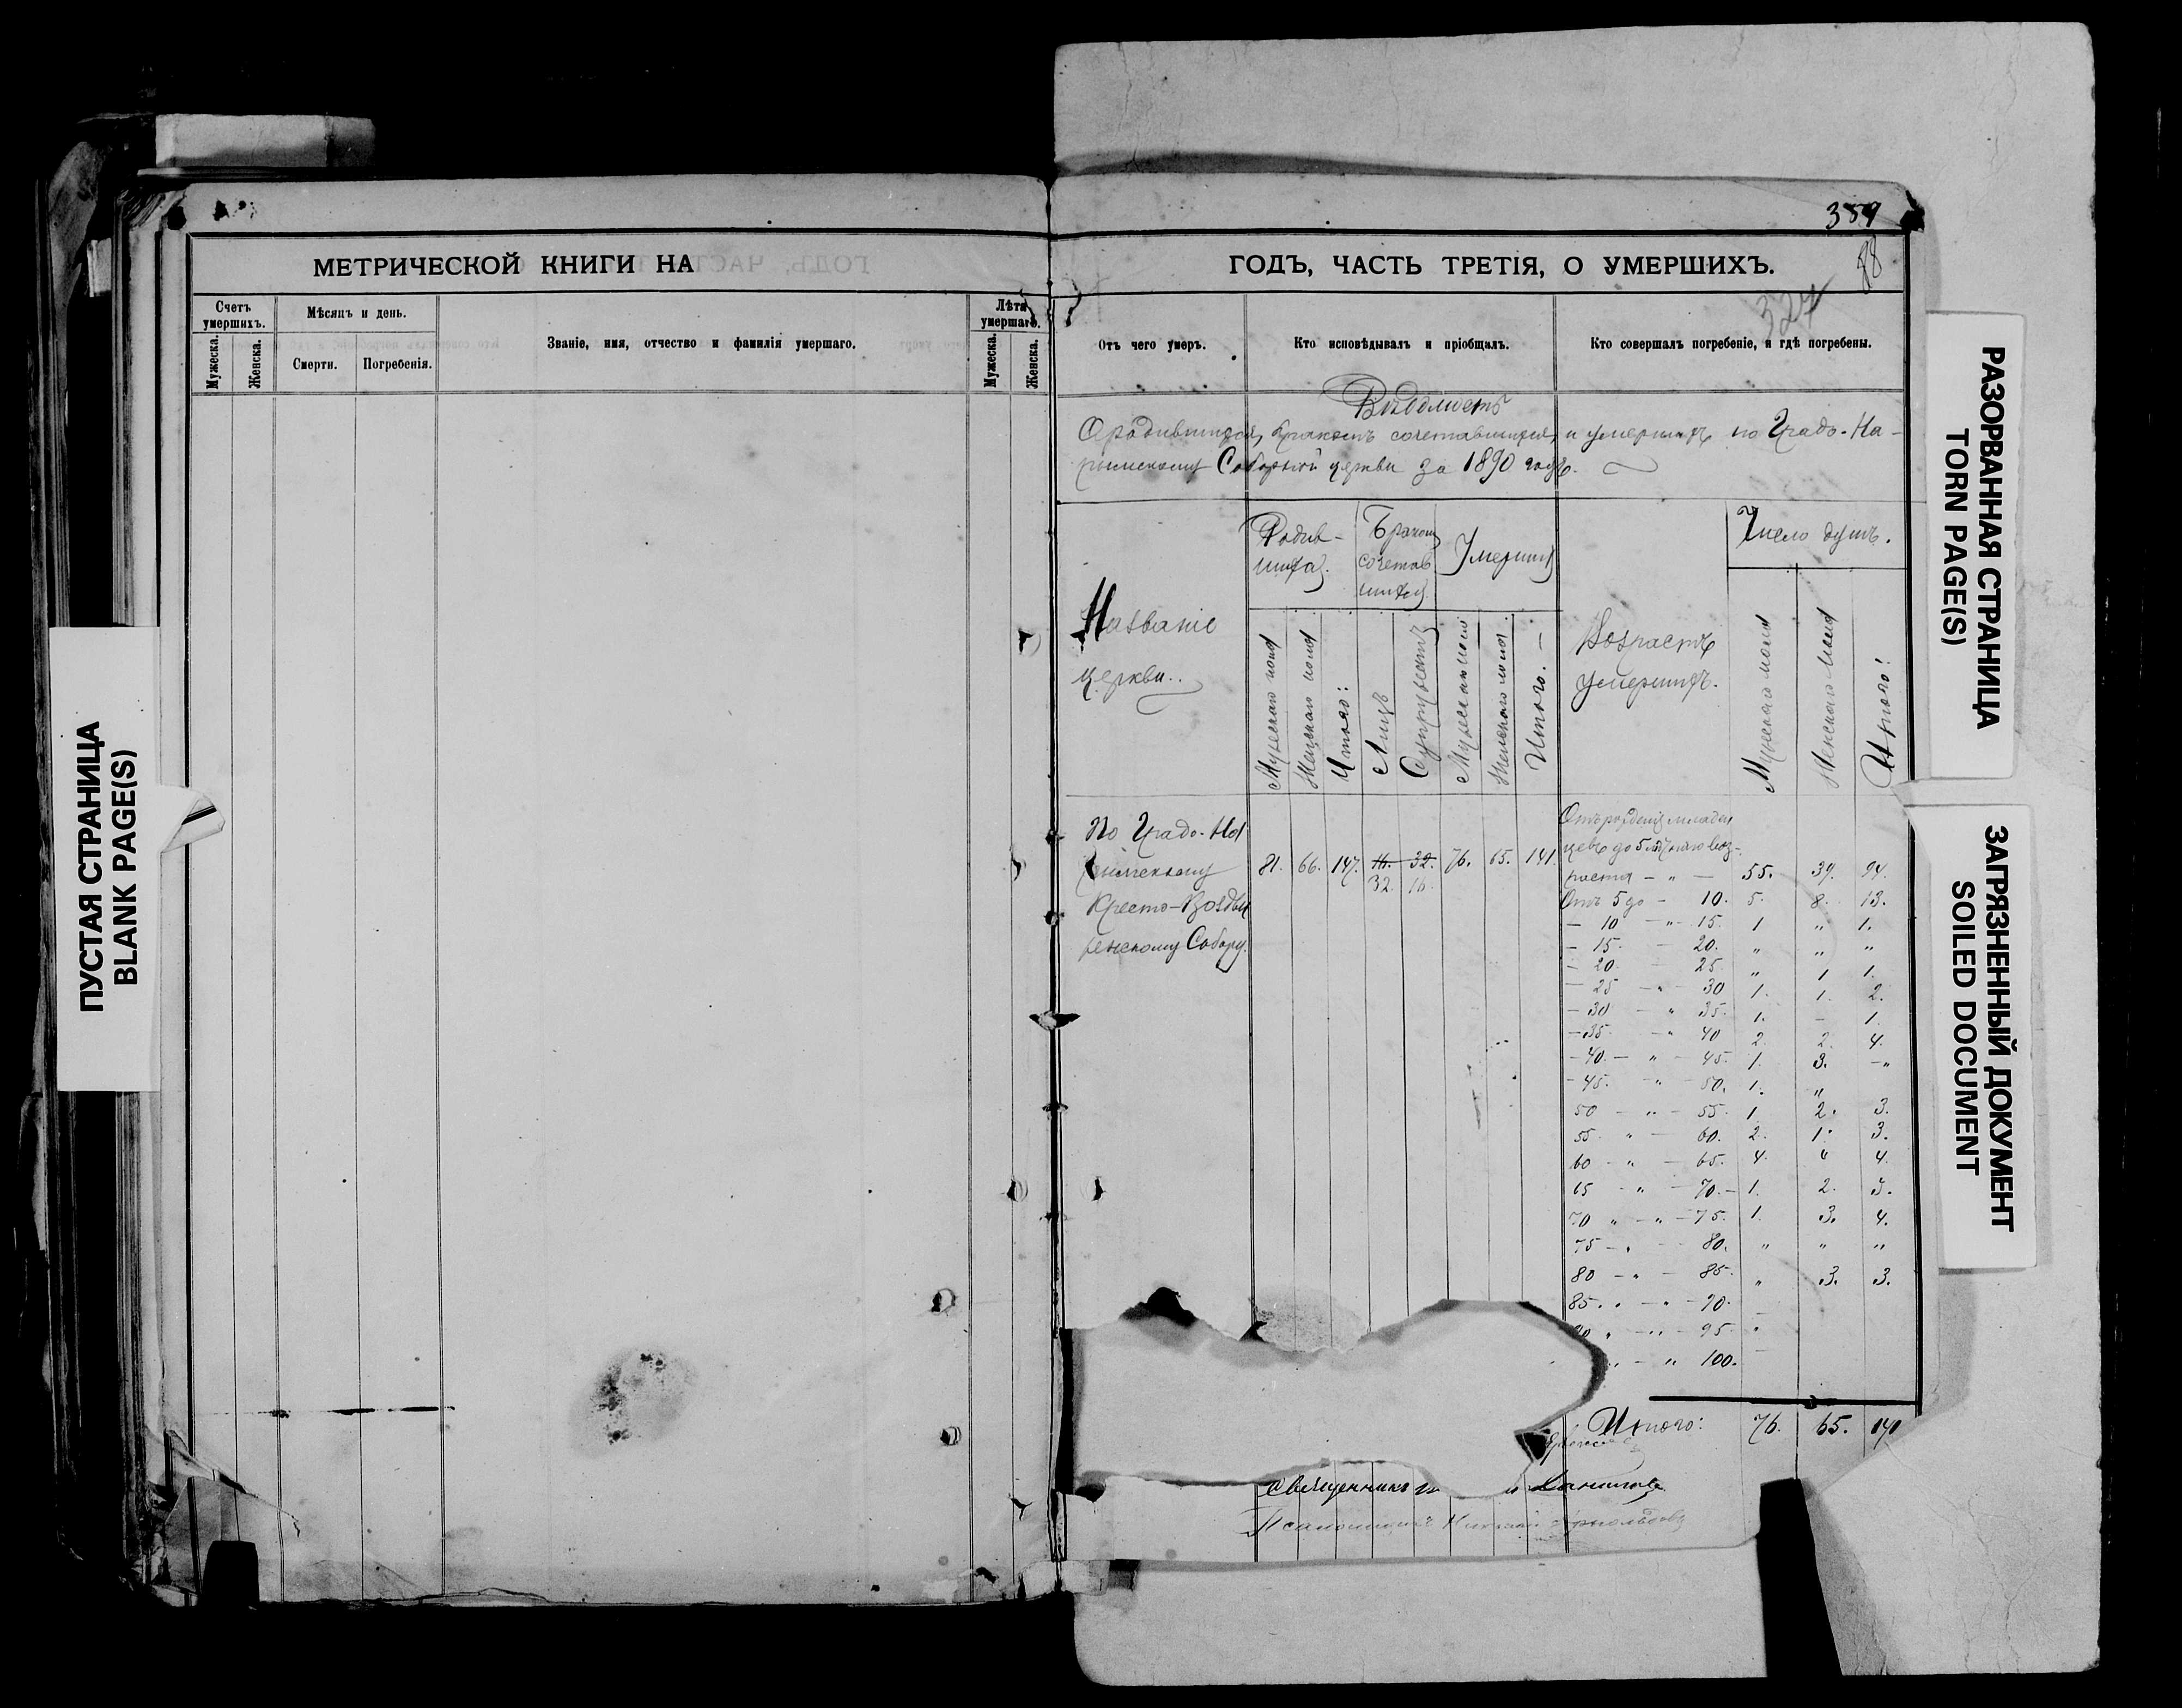 359
88
327
МЕТРИЧЕСКОЙ КНИГИ НА
ГОДЪ, ЧАСТЬ ТРЕТІЯ, О УМЕРШИХЪ.
Счетъ умершихъ.
Мужеска.
Женска.
Мѣсяцъ и день.
Смерти.
Погребенія.
Званіе, имя, отчество и фамилія умершаго.
Лѣта умершаго.
Мужеска.
Женска.
Отъ чего умеръ.
Кто исповѣдывалъ и пріобщалъ.
Кто совершалъ погребеніе, и гдѣ погребены.
Вѣдомость
О родившихся, бракомъ сочетавшихся, и умершихъ по Градо-На-
рымскому Соборной церкви за 1890 годъ.
Названіе
церкви.
Родив-
шихся.
Мужескаго пола
Женскаго пола
Итого:
Бракомъ
сочетав
шихся
Лицъ
Супружествъ
Умерших
Мужескаго пола
Женскаго пола
Итого. —
Возрастъ
умершихъ.
Число душъ.
Мужескаго пола
Женскаго пола
Итого:
По Градо-На
рымскому
Кресто-Воздви
женскому Собору.
81. 66. 147. 16. 32. 76. 65. 141.
32. 16.
Отъ рожденія младен
цевъ до 5 лѣтняго воз-
раста - " - 55. 39. 94.
Отъ 5 до - 10. 5. 8. 13.
- 10 - " - 15. 1 " 1.
- 15. - 20. " " "
- 20. - 25. " 1 1.
- 25 - " - 30 1. 1. 2.
- 30 - " 35. 1. - 1.
- 35. - " 40 2. 2. 4.
- 40. - " - 45. 1. 3. - "
- 45. - " - 50. 1. "
50 - " - 55. 1. 2. 3.
55. " - 60. 2. 1. 3.
60 - " - 65. 4. " 4.
65 - " - 70. - 1. 2. 3.
70 " - " - 75. 1. 3. 4.
75 - " - 80. " " "
80 - " - 85. " 3. 3.
85. " - " - 90. -
90 " - " - 95. "
" - " 100. -
Итого: 76. 65. 141
Священникъ Даниловъ
Псаломщикъ Николай
ПУСТАЯ СТРАНИЦА
BLANK PAGE(S)
РАЗОРВАННАЯ СТРАНИЦА
TORN PAGE(S)
ЗАГРЯЗНЕННЫЙ ДОКУМЕНТ
SOILED DOCUMENT